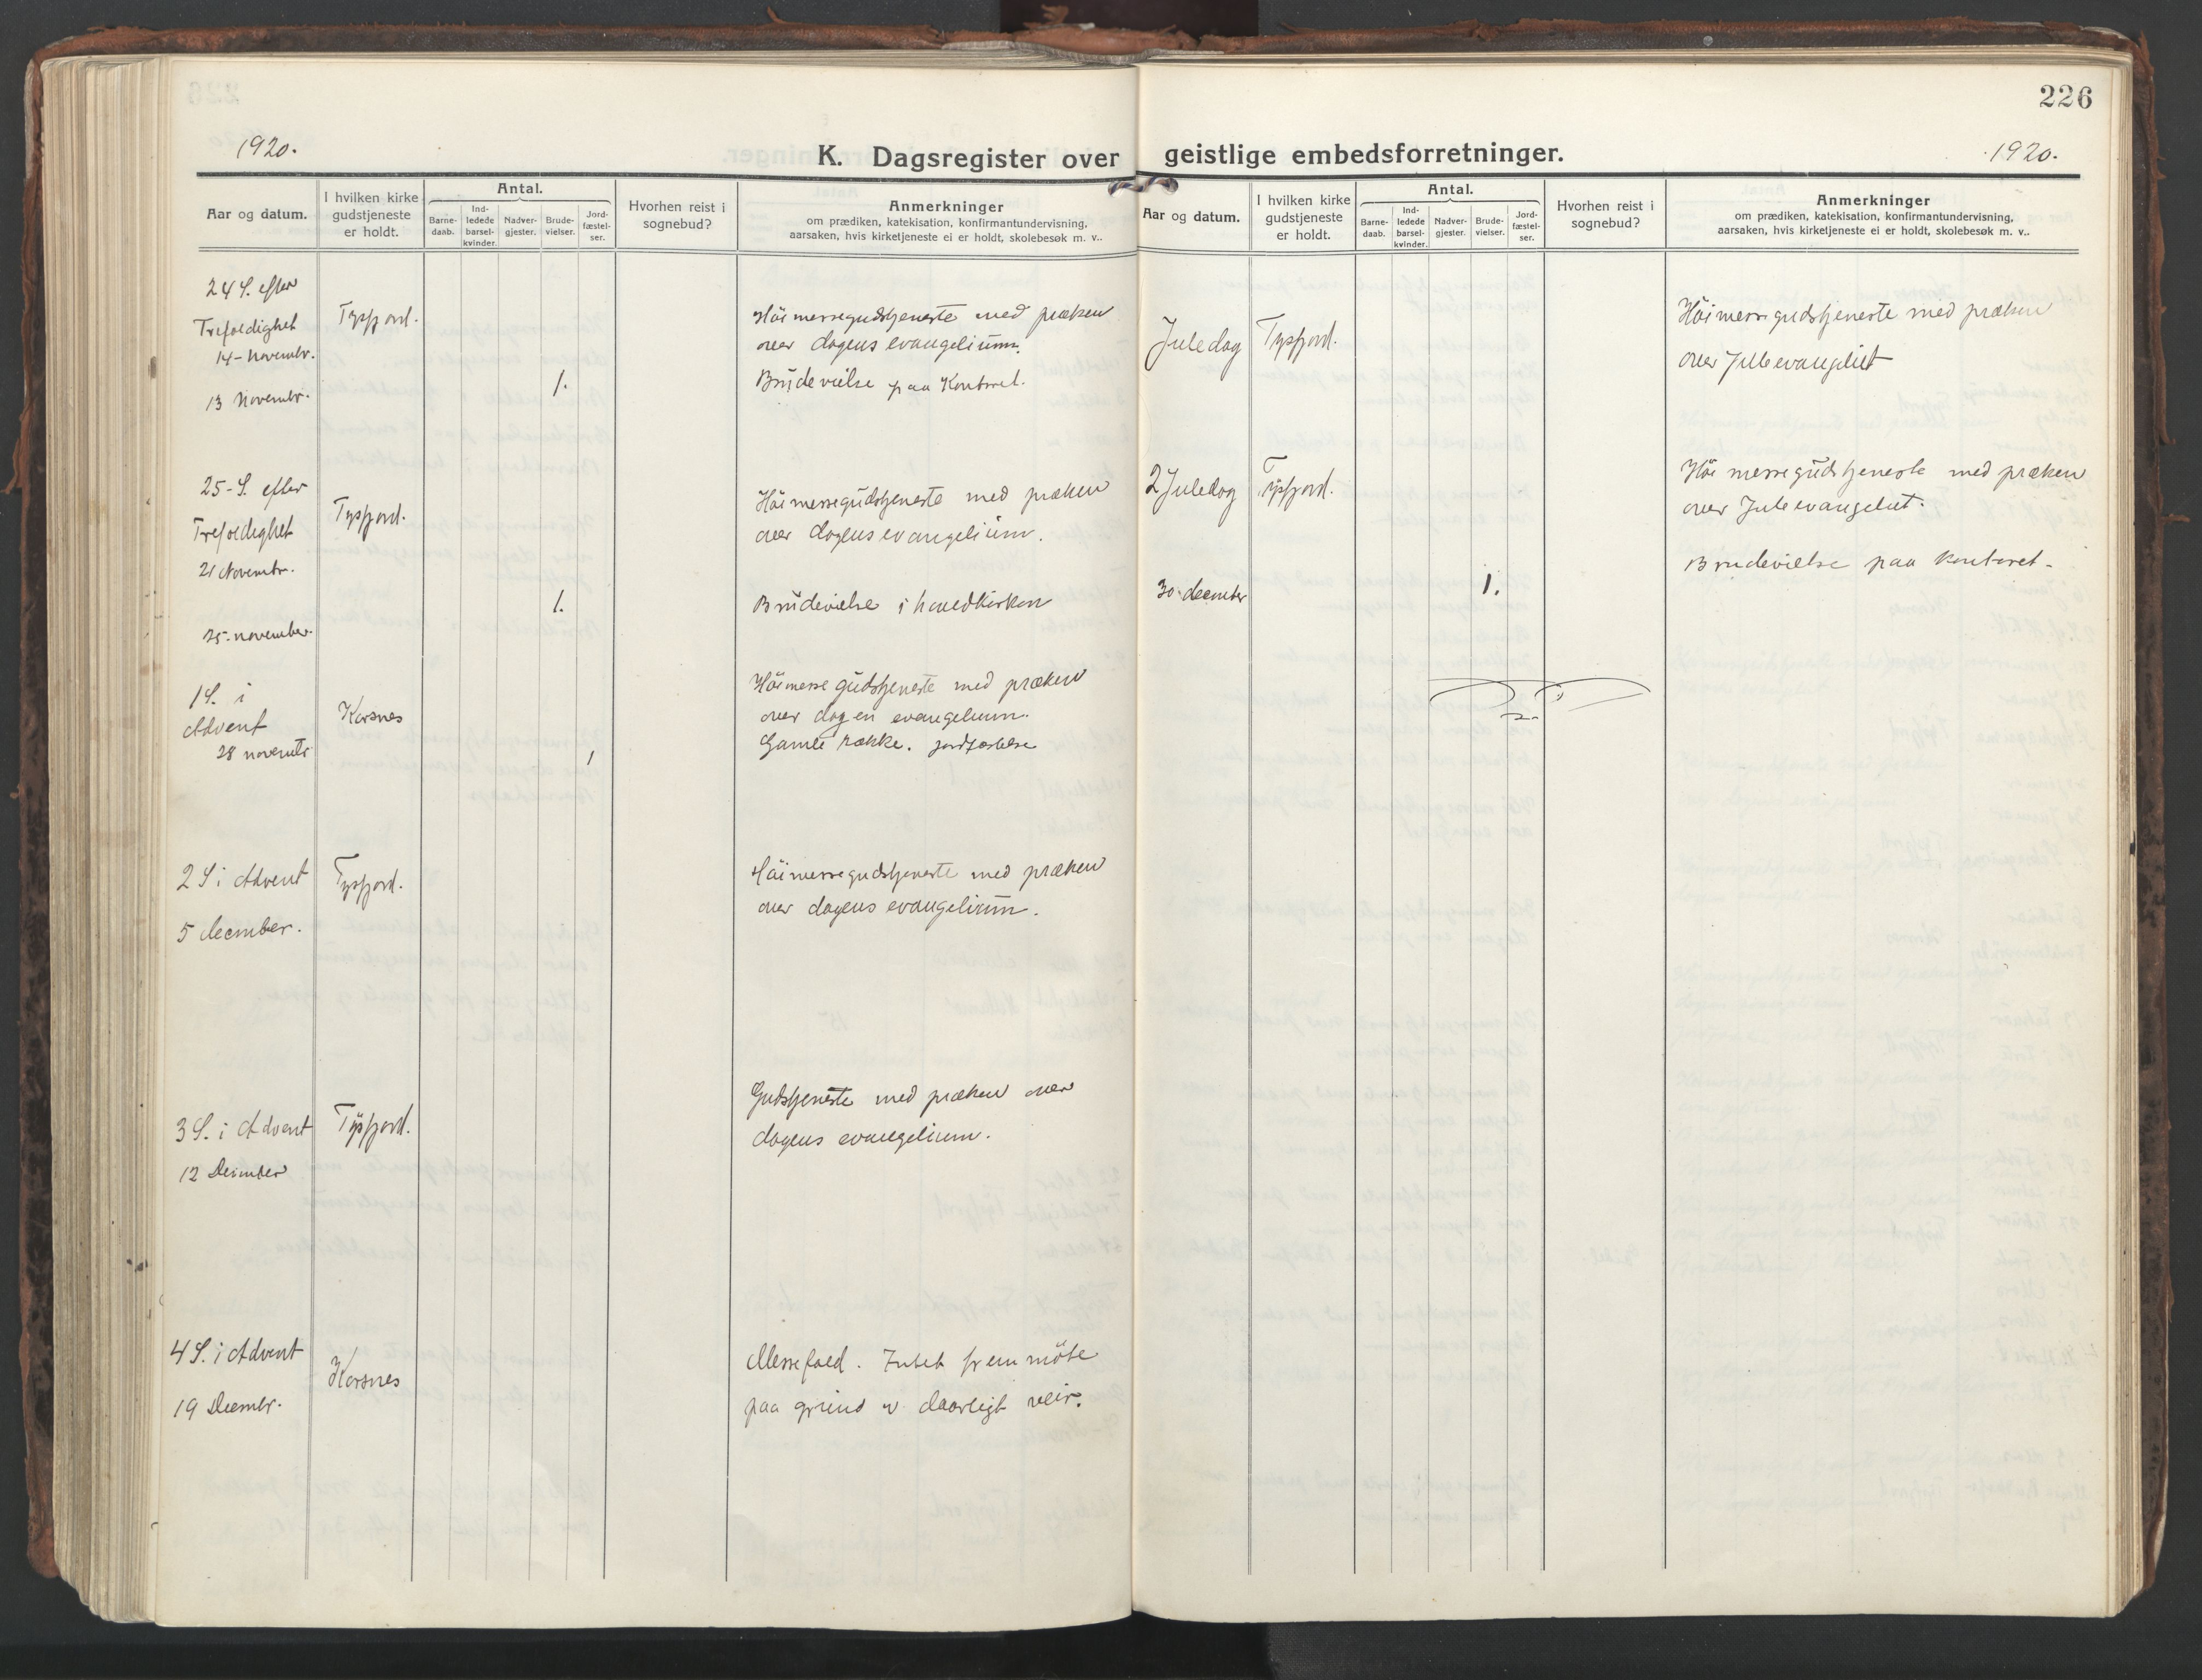 226
1920.
1920.
K. Dagsregister over geistlige embedsforretninger.
Aar og datum.
I hvilken kirke gudstjeneste er holdt.
Antal.
Barne-daab.
Ind-ledede barsel-kvinder.
Nadver-gjester.
Brude-vielser.
Jord-fæstel-ser.
Hvorhen reist i sognebud?
Anmerkninger
om prædiken, katekisation, konfirmantundervisning,
aarsaken, hvis kirketjeneste ei er holdt, skolebesøk m. v..
24 S. efter
Trefoldighet
14-Novembr.
Tysfjord.
Höimessegudstjeneste med præken
over dagens evangelium.
13 Novembr.
1.
Brudevielse paa Kontoret.
25-S. efter
Trefoldighet
21 Novembr.
Tysfjord.
Höimessegudstjeneste med præken
over dagens evangelium.
25-november.
1.
Brudevielse i hovedkirken
1 S. i
Advent
28 novembr
Korsnes
1
Höimesse gudstjeneste med præken
over dagen evangelium.
Gamle række. jordfæstelse
2 S i Advent
5 december.
Tysfjord.
Höimessegudstjeneste med præken
over dagens evangelium.
3 S. i Advent
12 December
Tysfjord.
Gudstjeneste med præken over
dagens evangelium.
4 S. i Advent
19 Decembr.
Korsnes
Messefald. Intet fremmöte
paa grund v daarligt veir.
Aar og datum.
I hvilken kirke gudstjeneste er holdt.
Antal.
Barne-daab.
Ind-ledede barsel-kvinder.
Nadver-gjester.
Brude-vielser.
Jord-fæstel-ser.
Hvorhen reist i sognebud?
Anmerkninger
om prædiken, katekisation, konfirmantundervisning,
aarsaken, hvis kirketjeneste ei er holdt, skolebesøk m. v..
Juledag
Tysfjord.
Höimessegudstjeneste med præken
over Juleevangeliet
2 Juledag
Tysfjord.
Höimessegudstjeneste med præken
over Juleevangeliet.
30. december
1.
Brudevielse paa Kontoret.